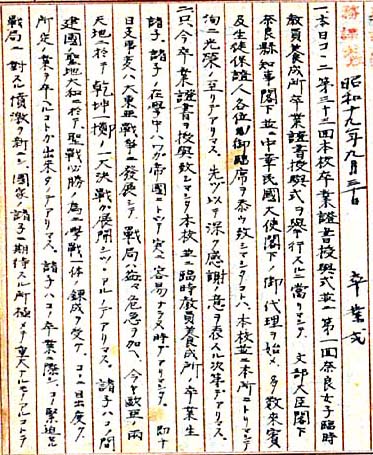 昭和十九年九月三十日 卒業式
一、本日ココニ第三十二回本校卒業證書授與式並ニ第一回奈良女子臨時
教員養成所卒業證書授與式ヲ擧行スルニ當リマシテ 文部大臣閣下
奈良縣知事閣下並ニ中華民國大使閣下ノ御代理ヲ始メ多數來賓
及生徒保證人各位ノ御臨席ヲ忝ウ致シマシタコトハ本校並ニ本所ニトリマシテ
洵ニ光榮ノ至リデアリマス。先ヅ以テ深ク感謝ノ意ヲ表スル次第デアリマス。
二、只今卒業證書ヲ授與致シマシタ本校並ニ臨時教員養成所ノ卒業生
諸子、諸子ノ在學中ハワガ帝國ニトツテ實ニ容易ナラヌ時デアリマシタ。即チ
日支事変ハ大東亜戰爭ニ發展シテ 戰局益々危急ヲ加ヘ、今ヤ歐亜ノ両
天地ニ於テ乾坤一擲ノ一大決戰ガ展開シツツアルノデアリマス。諸子ハコノ間
建國ノ聖地大和ニ於テ聖戰必勝ノ為ニ學戰一体ノ錬成ヲ受ケ、ココニ目出度ク
所定ノ業ヲ卒ヘルコトガ出來タノデアリマス。諸子ハコノ卒業ニ際シ、コノ緊迫セル
戰局ニ對スル憤激ヲ新ニシ國家ノ諸子ニ期待スル所極メテ重大ナルモノアルコトヲ